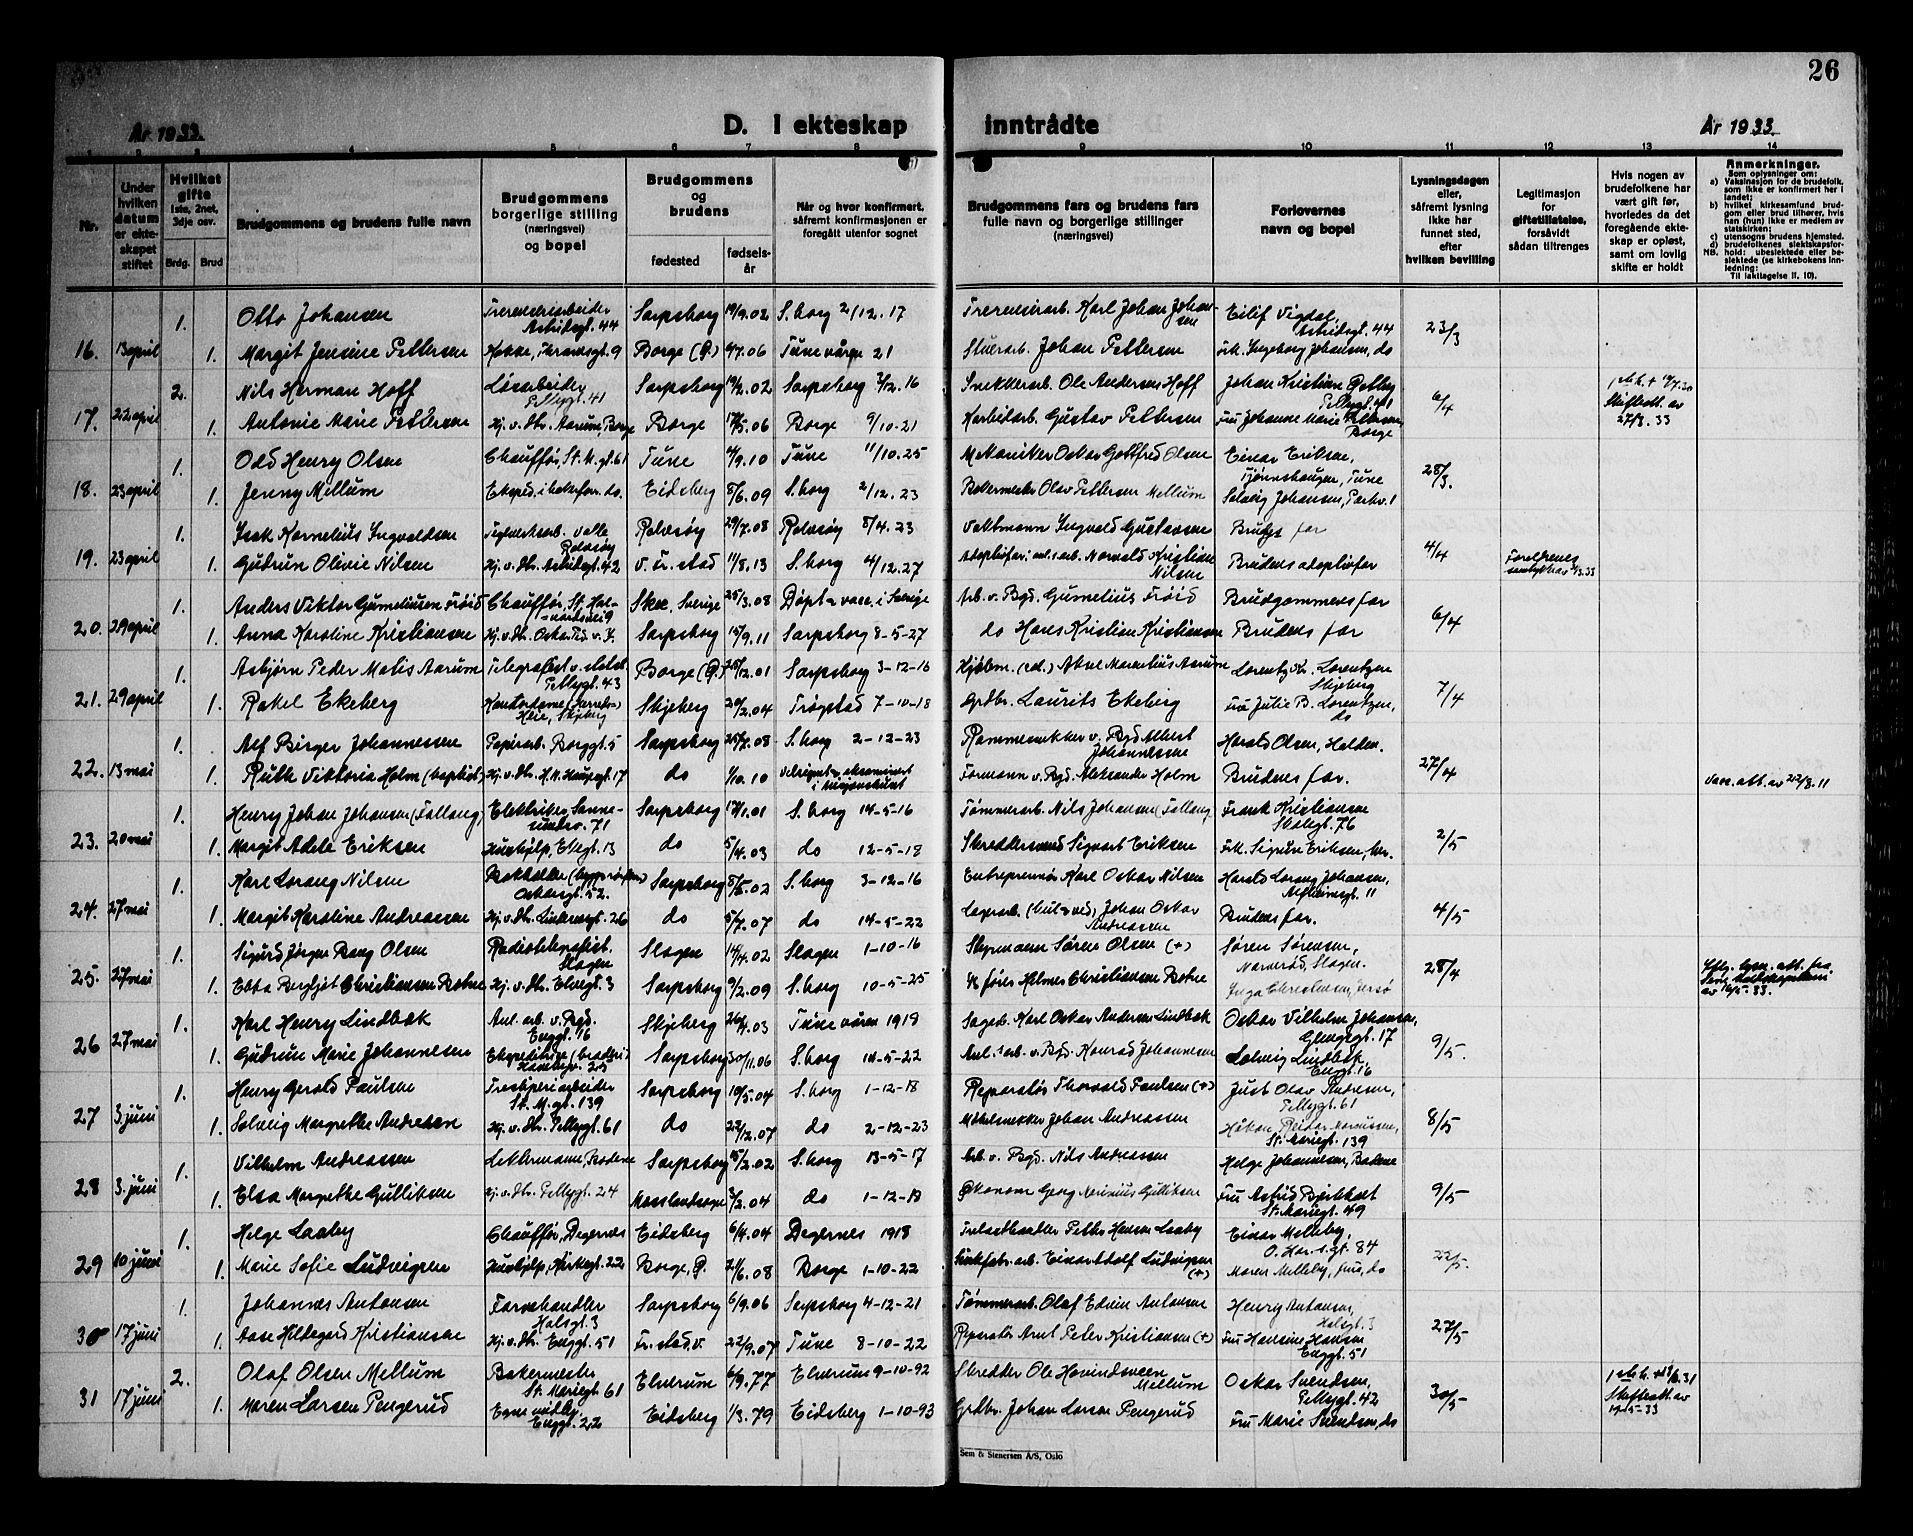 26
År 1933.
D. I ekteskap inntrådte
År 1933
1 2 3 4 5 6 7 8 9 10 11 12 13 14
Nr.
Under hvilken datum er ekteskapet stiftet
Hvilket gifte 1ste, 2net, 3dje osv.
Brdg. Brud
Brudgommens og brudens fulle navn
Brudgommens borgerlige stilling (næringsvei) og bopel
Brudgommens og brudens
fødested
fødselsår
Når og hvor konfirmert, såfremt konfirmasjonen er foregått utenfor sognet
Brudgommens fars og brudens fars fulle navn og borgerlige stillinger (næringsvei)
Forlovernes navn og bopel
Lysningsdagen eller, såfremt lysning ikke har funnet sted, efter hvilken bevilling
Legitimasjon for giftetillatelse, forsåvidt sådan tiltrenges
Hvis nogen av brudefolkene har vært gift før, hvorledes da det foregående ekteskap er opløst, samt om lovlig skifte er holdt
Anmerkninger.
Som oplysninger om:
a) Vaksinasjon for de brudefolk, som ikke er konfirmert her i landet;
b) hvilket kirkesamfund brudgom eller brud tilhører, hvis han (hun) ikke er medlem av statskirken;
c) utensogns brudens hjemsted.
d) brudefolkenes slektskapsforhold: ubeslektede eller beslektede (se kirkebokens innledning:
NB.
Til iakttagelse II. 10).
1. Otto Johansen Astridsgt. 44 Sarpsborg 19/9.02 S.borg 2/12.17 Karl Johan Johansen Eilif Vigdal, Astridsgt. 44
16. 13 april 1. Margit Jensine Pettersen Borge (Ø.) 4/7.06 Tune våren 21 Johan Pettersen frk. Ingeborg Johansen, do 23/3
2. Nils Herman Hoff Løsarbeider Pellygt. 41 Sarpsborg 02 Sarpsborg 3/12.16 Snekkerarb. Ole Andersen Hoff Johan Kristian Pellygt. 41
17. 22 april 1. Antonie Marie Pettersen Hj. v. Dr. Aarum, Borge Borge 06 Borge 9/10-21 Gustav Pettersen Fru Johanne Marie Pettersen, Borge 6/4 Skifteatt. av 27/3.33
1. Odd Henry Olsen Chauffør, St. M. gt. 61 Tune 4/9.10 Tune 11/10.25 Mekaniker Oskar Gottfred Olsen Einar Eriksen, Tune
18. 23 april 1. Jenny Mellum Eidsberg 8/6.09 S.borg 2/12.23 Bakermester Olav Pettersen Mellum Solveig Johansen, Parkv. 1 28/3.
1. Isak Kornelius Ingvaldsen Rolvsøy Rolvsøy 29/7.08 Rolvsøy 8/4.23 Vaktmann Ingvald Gustavsen Brudgs far
19. 23 april 1. Gudrun Olivie Nilsen Hj. v. Dr. Astridsgt. 42 v. Fr.stad 11/8.13 S.borg 4/12.27 Norvald Kristian Nilsen Brudens adoptivfar 4/4 Foreldrenes samtykke av 3/3.33
1. Anders Viktor Gumeliusen Frøid Chauffør, St. Hal- Skee, Sverige 25/3.08 Døpt & vacc. i Sverige Arb. v. Bgd. Gumelius Frøid Brudgommens far
20. 29 april 1. Anna Karoline Kristiansen Sarpsborg 15/9.11 Sarpsborg 8-5-27 do Hans Kristian Kristiansen Brudens far 6/4
1. Asbjørn Peder Matis Aarum Telegrafist v. statsb. Pellygt. 43 Borge (Ø.) 12.01 Sarpsborg 3-12-16 Aksel Marentius Aarum Lorentz Kr. Lorentzen Skjeberg
21. 29 april 1. Rakel Ekeberg Høie, Skjeberg Skjeberg 20/2.04 Trøgstad 7-10-18 Grdbr. Laurits Ekeberg Fru Julie B. Lorentzen, do 7/4
1. Alf Birger Johannessen Papirarb. Borggt. 5 Sarpsborg 25/7.08 S.borg 2-12-23 Rammesnekker v. Bgd Albert Johannessen Harald Olsen, Halden.
22. 13 mai 1. Ruth Viktoria Holm (baptist) Hj. v. Dr. H. N. Haugsgt. 17 do 1/10.10 Formann v. Bgd. Aleksander Holm Brudens far. 27/4 Vacc. att. av 22/3.11
1. Henry Johan Johansen (Fallang) Elektriker, Sanne- sundsv. 71 Sarpsborg 1.01 S.borg 14-5-16 Tømmerarb. Nils Johansen (Fallang) Frank Kristiansen Skolegt. 76
23. 20 mai 1. Margit Adele Eriksen Hushjelp, Elvegt. 13 do 5/4.03 do 12-5-18 Skreddersvend Sigvart Eriksen Frk. Sigrun Eriksen, her. 2/5
1. Karl Lorang Nilsen Oskarsgt. 52. Sarpsborg 8/5.02 S.borg 3-12-16 Entreprenør Karl Oskar Nilsen Harald Lorang Johansen, Alfheimsgt. 11
24. 27 mai 1. Margit Karoline Andreassen Hj. v. Dr. Lindemsgt. 26 do 5/7.07 do 14-5-22 Lagerarb. (kul & ved) Johan Oskar Andreassen Brudens far. 4/5
1. Sigurd Jørgen Bang Olsen Radiotelegrafist. Slagen Slagen 14/4.02 Slagen 1-10-16 Styrmann Søren Olsen (+) Søren Sørensen, Slagen.
25. 27 mai 1. Ebba Bergljot Christiansen Botne Hj. v. Dr. Elvegt. 3 Sarpsborg 9/2.09 S.borg 10-5-25 Hilmer Christiansen Botne Inga Christensen, 28/4
1. Karl Henry Lindbæk Anl. arb. v. Bgd. Enggt. 16 Skjeberg 26/4.03 Tune våren 1918 Karl Oskar Andersen Lindbæk Oskar Vilhelm Johansen, Glengsgt. 17
26 27 mai 1. Gudrun Marie Johannesen Sarpsborg 30/11.06 S.borg 14-5-22 Anl. & arb. v. Bgd. Konrad Johannesen Solveig Lindbæk Enggt. 16 9/5.
1. Henry Gerald Paulsen Tresliperiarbeider St. M. gt. 139 Sarpsborg 19/5.04 S.borg 1-12-18 Reparatør Thorvald Paulsen (+) Just Olav Andresen, Pellygt. 61
27 3 juni 1. Solveig Margrethe Andresen Hj. v. Dr. Pellygt. 61 do 22/12.07 do 2-12-23 Møbelsnekker Johan Andreassen Håkon Reidar St. Mariegt. 139 8/5
1. Vilhelm Andreassen Sarpsborg 15/2.02 S.borg 13-5-17 Arb. v. Bgd. Nils Andreassen Helge Johannesen,
28 3. juni 1. Elsa Margrethe Gulliksen Hj. v. Dr. Pellygt. 24 3/2.04 do 1-12-18 Økonom Georg Gulliksen Fru Astrid Bjerkholt St. Mariegt. 49 9/5
1. Helge Laaby Chauffør, Degernes Eidsberg 6/4.04 Degernes 1918 Petter Hansen Laaby Einar Melleby, O. Har.s gt. 84
29 10 juni 1. Marie Sofie Ludvigsen Hushjelp, Kirkegt. 22 Borge, Ø. 21/6.08 Borge 1-10-22 Einar Adolf Ludvigsen (+) Maren Melleby, frue, do 22/5.
1. Johannes Antonsen Farvehandler Halsgt. 3 Sarpsborg 6/9.06 Sarpsborg 4-12-21 Tømmerarb. Olaf Edvin Antonsen Henry Antonsen, Halsgt. 3
30 17 juni 1. Aase Hildegard Kristiansen Hj. v. Dr. Enggt. 51 Fr.stad. v. 22/9.07 Tune 8-10-22 Reparatør Arnt Peter Kristiansen (+) Fru Hansine Hansen Enggt. 51 27/5
2. Olaf Olsen Mellum Bakermester St. Mariegt. 61 Elverum 6/9.77 Elverum 9-10-92 Skredder Ole Mellum Oskar Svendsen, Pellygt. 42
31 17 juni 1. Maren Larsen Pengerud Enggt. 22 Eidsberg 1/3.79 Eidsberg 1-10-93 Grdbr. Johan Larsen Pengerud Fru Marie Svendsen, do 30/5 Skifteatt. av 19-5-33
Sem & Stenersen A/S, Oslo